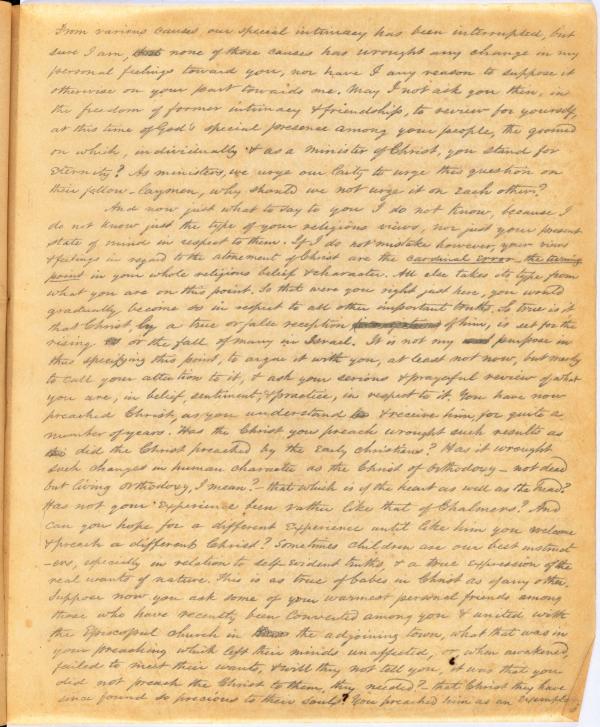 From various causes our special intimacy has been interrupted, but
sure I am, that none of those causes has wrought any change in my
personal feelings toward you, nor have I any reason to suppose it
otherwise on your part towards me. May I not ask you then, in
the freedom of former intimacy & friendship, to review for yourself,
at this time of God's special presence among your people, the ground
on which, individually & as a minister of Christ, you stand for
Eternity? As ministers, we urge our laity to urge this question on
their fellow-laymen, why should we not urge it on each other?
And now just what to say to you I do not know, because I
do not know just the type of your religious views, nor just your present
state of mind in respect to them. If I do not mistake however, your views
& feelings in regard to the atonement of Christ are the cardinal error - the turning
point in your whole religious belief & character. All else takes its type from
what you are on this point. So that were you right just here, you would
gradually become so in respect to all other important truths. So true is it
that Christ by a true or false reception of him, is set for the
rising or the fall of many in Israel. It is not my purpose in
thus specifying this point, to argue it with you, at least not now, but merely
to call your attention to it, & ask your serious & prayerful review of what
you are, in belief, sentiment, & practice, in respect to it. You have now
preached Christ, as you understand & receive him, for quite a
number of years. Has the Christ you preach wrought such results as
did the Christ preached by the Early Christians? Has it wrought
such changes in human character as the Christ of Orthodoxy - not dead
but living Orthodoxy, I mean? - that which is of the heart as well as the head?
Has not your Experience been rather like that of Chalmers? And
can you hope for a different Experience until like him you welcome
& preach a different Christ? Sometimes children are our best instruct
-ers, especially in relation to self-evident truths, & a true expression of the
real wants of nature. This is as true of babes in Christ as of any other.
Suppose now you ask some of your warmest personal friends among
those who have recently been converted among you & united with
the Episcopal church in the adjoining town, what that was in
your preaching which left their minds unaffected, or, when awakened,
failed to meet their wants, & will they not tell you, it was that you
did not preach the Christ to them, they needed? - that Christ they have
since found so precious to their souls? You preached him as an Example